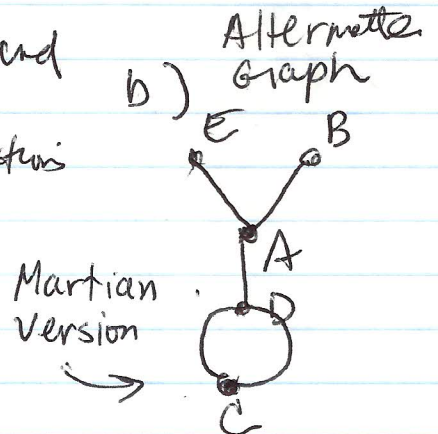 Alternate
b) Graph
E
B
A
Martian
Version
D
C